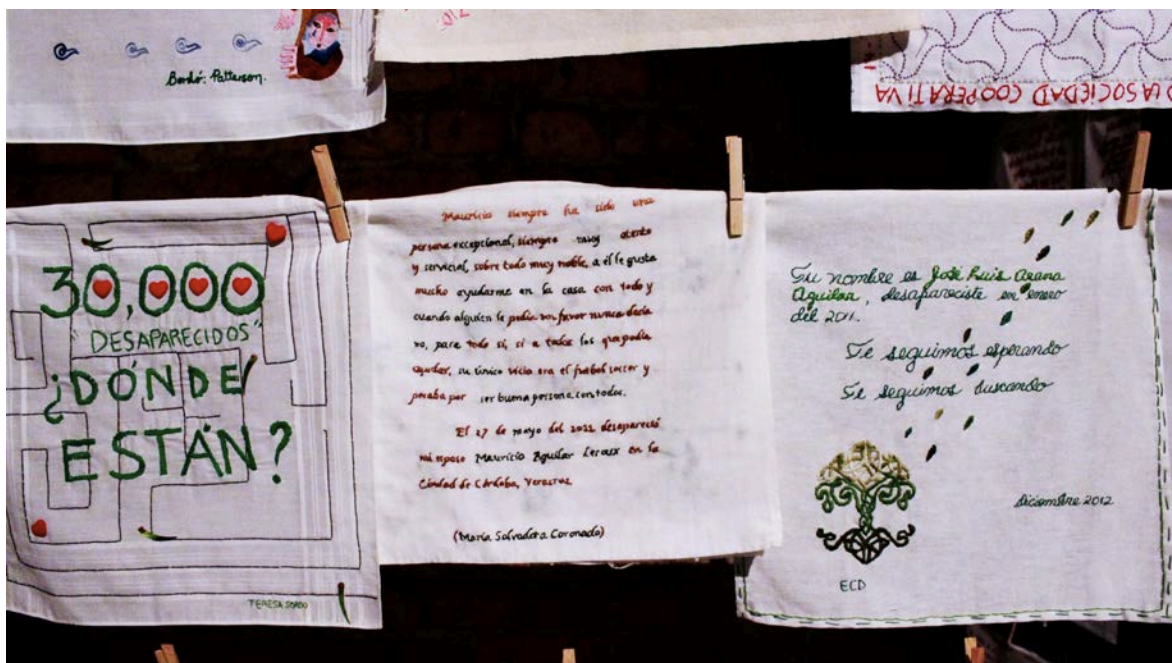 Bordó: Patterson.
O LA SOCIEDAD COOPERATIVA
30,000
"DESAPARECIDOS"
¿DÓNDE
ESTÁN?
TERESA SORDO
Mauricio siempre ha sido una
persona excepcional, siempre muy atento
y servicial, sobre todo muy noble, a él le gusta
mucho ayudarme en la casa con todo y
cuando alguien le pedía un favor nunca decía
no, para todo sí, si a todos los que podía
ayudar, su único vicio era el futbol soccer y
pecaba por ser buena persona con todos.
El 27 de mayo del 2011 desapareció
mi esposo Mauricio Aguilar Leroux en la
Ciudad de Córdoba, Veracruz
(María Salvadora Coronado)
Tu nombre es José Luis Arana
Aguilar, desapareciste en enero
del 2011.
Te seguimos esperando
Te seguimos buscando
diciembre 2012
ECD